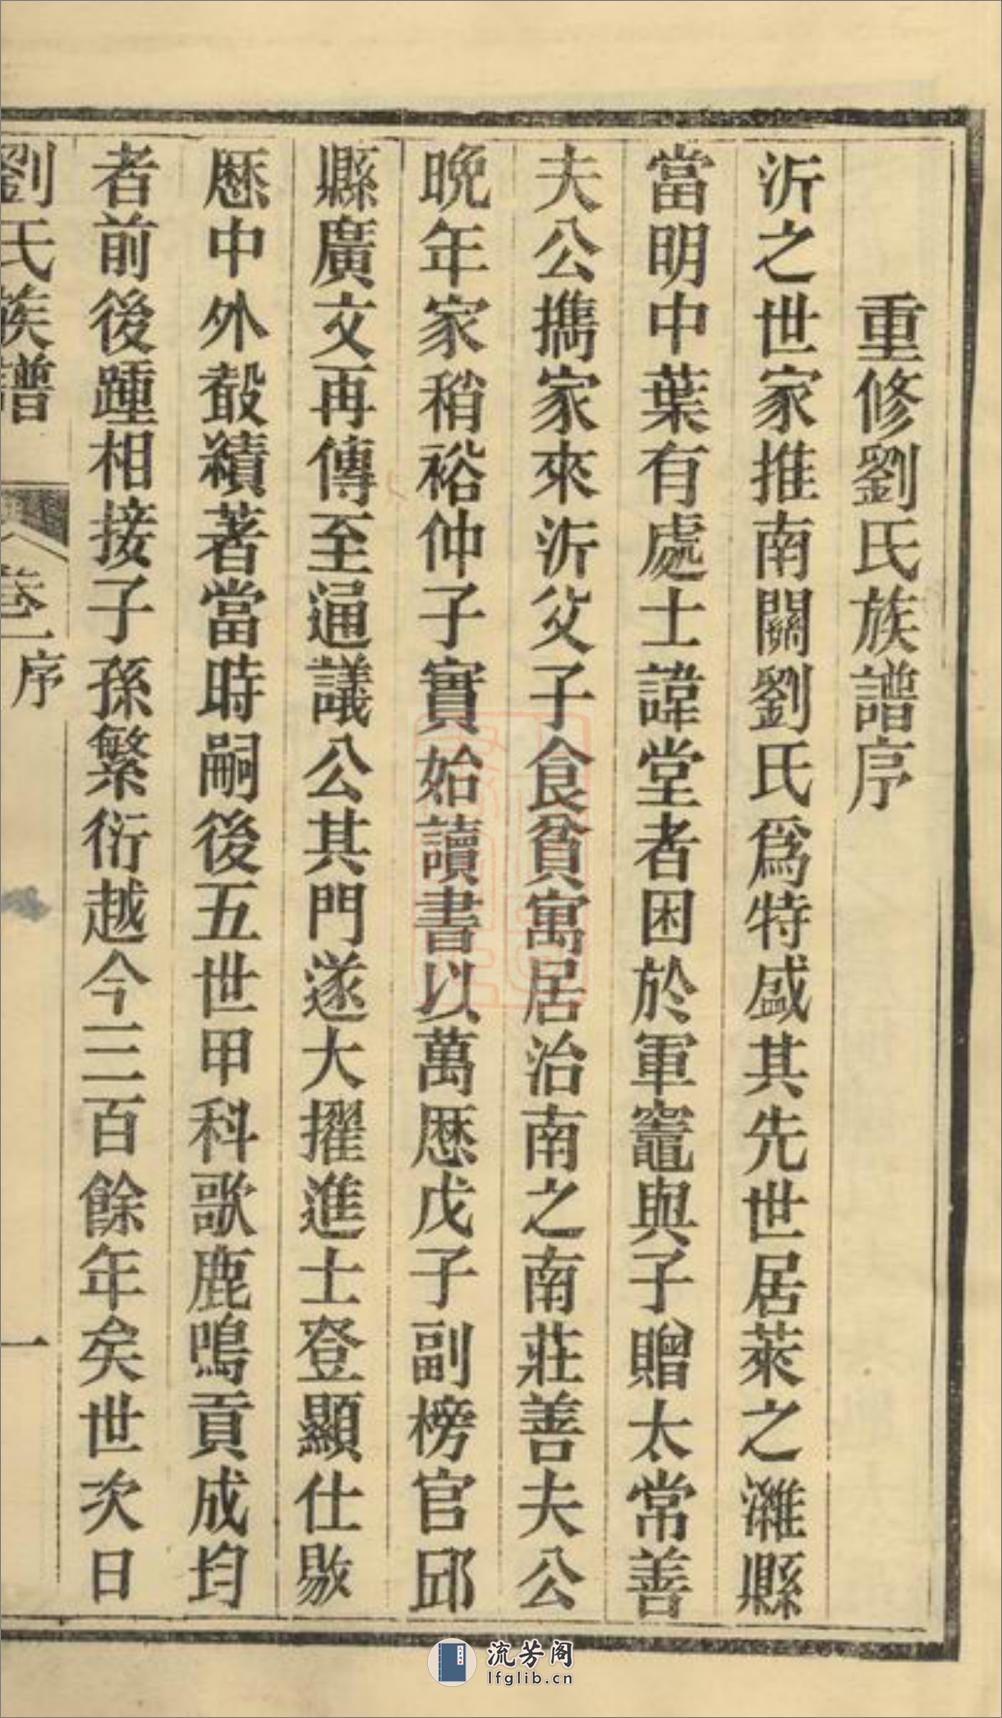 重修劉氏族譜序
沂之世家推南關劉氏爲特盛其先世居萊之濰縣
當明中葉有處士諱堂者困於軍竈與子贈太常善
夫公擕家來沂父子食貧寓居治南之南莊善夫公
晚年家稍裕仲子實始讀書以萬厯戊子副榜官邱
縣廣文再傳至通議公其門遂大擢進士登顯仕敭
厯中外殽績著當時嗣後五世甲科歌鹿鳴貢成均
者前後踵相接子孫繁衍越今三百餘年矣世次日
劉氏族譜 卷一序 一
流芳阁
lfglib.cn